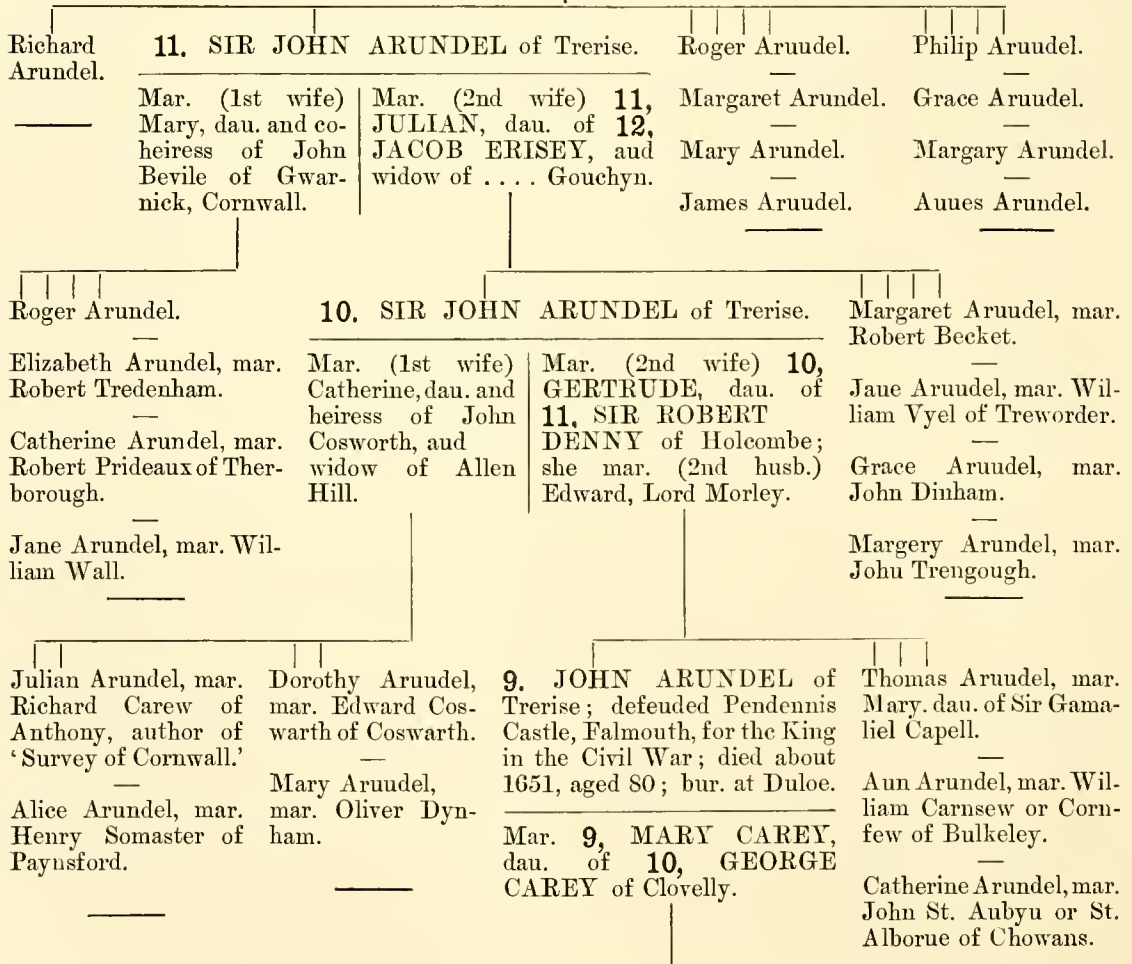 Richard
Arundel.
11. SIR JOHN ARUNDEL of Trerise.
Mar. (1st wife)
Mary, dau. and co-
heiress of John
Bevile of Gwar-
nick, Cornwall.
Mar. (2nd wife) 11,
JULIAN, dau. of 12,
JACOB ERISEY, aud
widow of .... Gouchyn.
Roger Aruudel.
—
Margaret Arundel.
—
Mary Arundel.
—
James Aruudel.
Philip Aruudel.
—
Grace Aruudel.
—
Margary Arundel.
—
Auues Arundel.
Roger Arundel.
—
Elizabeth Arundel, mar.
Robert Tredenham.
—
Catherine Arundel, mar.
Robert Prideaux of Ther-
borough.
—
Jane Arundel, mar. Wil-
liam Wall.
10. SIR JOHN ARUNDEL of Trerise.
Mar. (1st wife)
Catherine, dau. and
heiress of John
Cosworth, aud
widow of Allen
Hill.
Mar. (2nd wife) 10,
GERTRUDE, dau. of
11, SIR ROBERT
DENNY of Holcombe;
she mar. (2nd husb.)
Edward, Lord Morley.
Margaret Aruudel, mar.
Robert Becket.
—
Jaue Aruudel, mar. Wil-
liam Vyel of Treworder.
—
Grace Aruudel, mar.
John Dinham.
—
Margery Arundel, mar.
Johu Trengough.
Julian Arundel, mar.
Richard Carew of
Anthony, author of
'Survey of Cornwall.'
—
Alice Arundel, mar.
Henry Somaster of
Paynsford.
Dorothy Aruudel,
mar. Edward Cos-
warth of Coswarth.
—
Mary Aruudel,
mar. Oliver Dyn-
ham.
9. JOHN ARUNDEL of
Trerise; defeuded Pendennis
Castle, Falmouth, for the King
in the Civil War; died about
1651, aged 80; bur. at Duloe.
Mar. 9, MARY CAREY,
dau. of 10, GEORGE
CAREY of Clovelly.
Thomas Aruudel, mar.
Mary. dau. of Sir Gama-
liel Capell.
—
Aun Arundel, mar. Wil-
liam Carnsew or Corn-
few of Bulkeley.
—
Catherine Arundel, mar.
John St. Aubyu or St.
Alborue of Chowans.